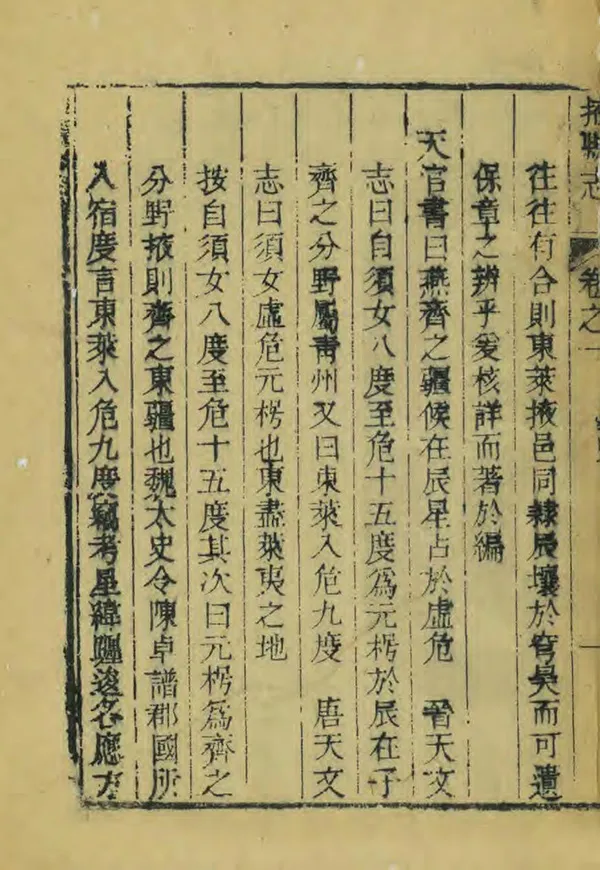 掖縣志 卷之一
往往有合則東萊掖邑同隸辰壤於穹昊而可遺
保章之辨乎爰核詳而著於編
天官書曰燕齊之疆候在辰星占於虛危 晉天文
志曰自須女八度至危十五度爲元枵於辰在子
齊之分野屬靑州又曰東萊入危九度 唐天文
志曰須女虛危元枵也東盡萊夷之地
按自須女八度至危十五度其次曰元枵爲齊之
分野掖則齊之東疆也魏太史令陳卓譜郡國所
入宿度言東萊入危九度竊考星緯躔逡各應方